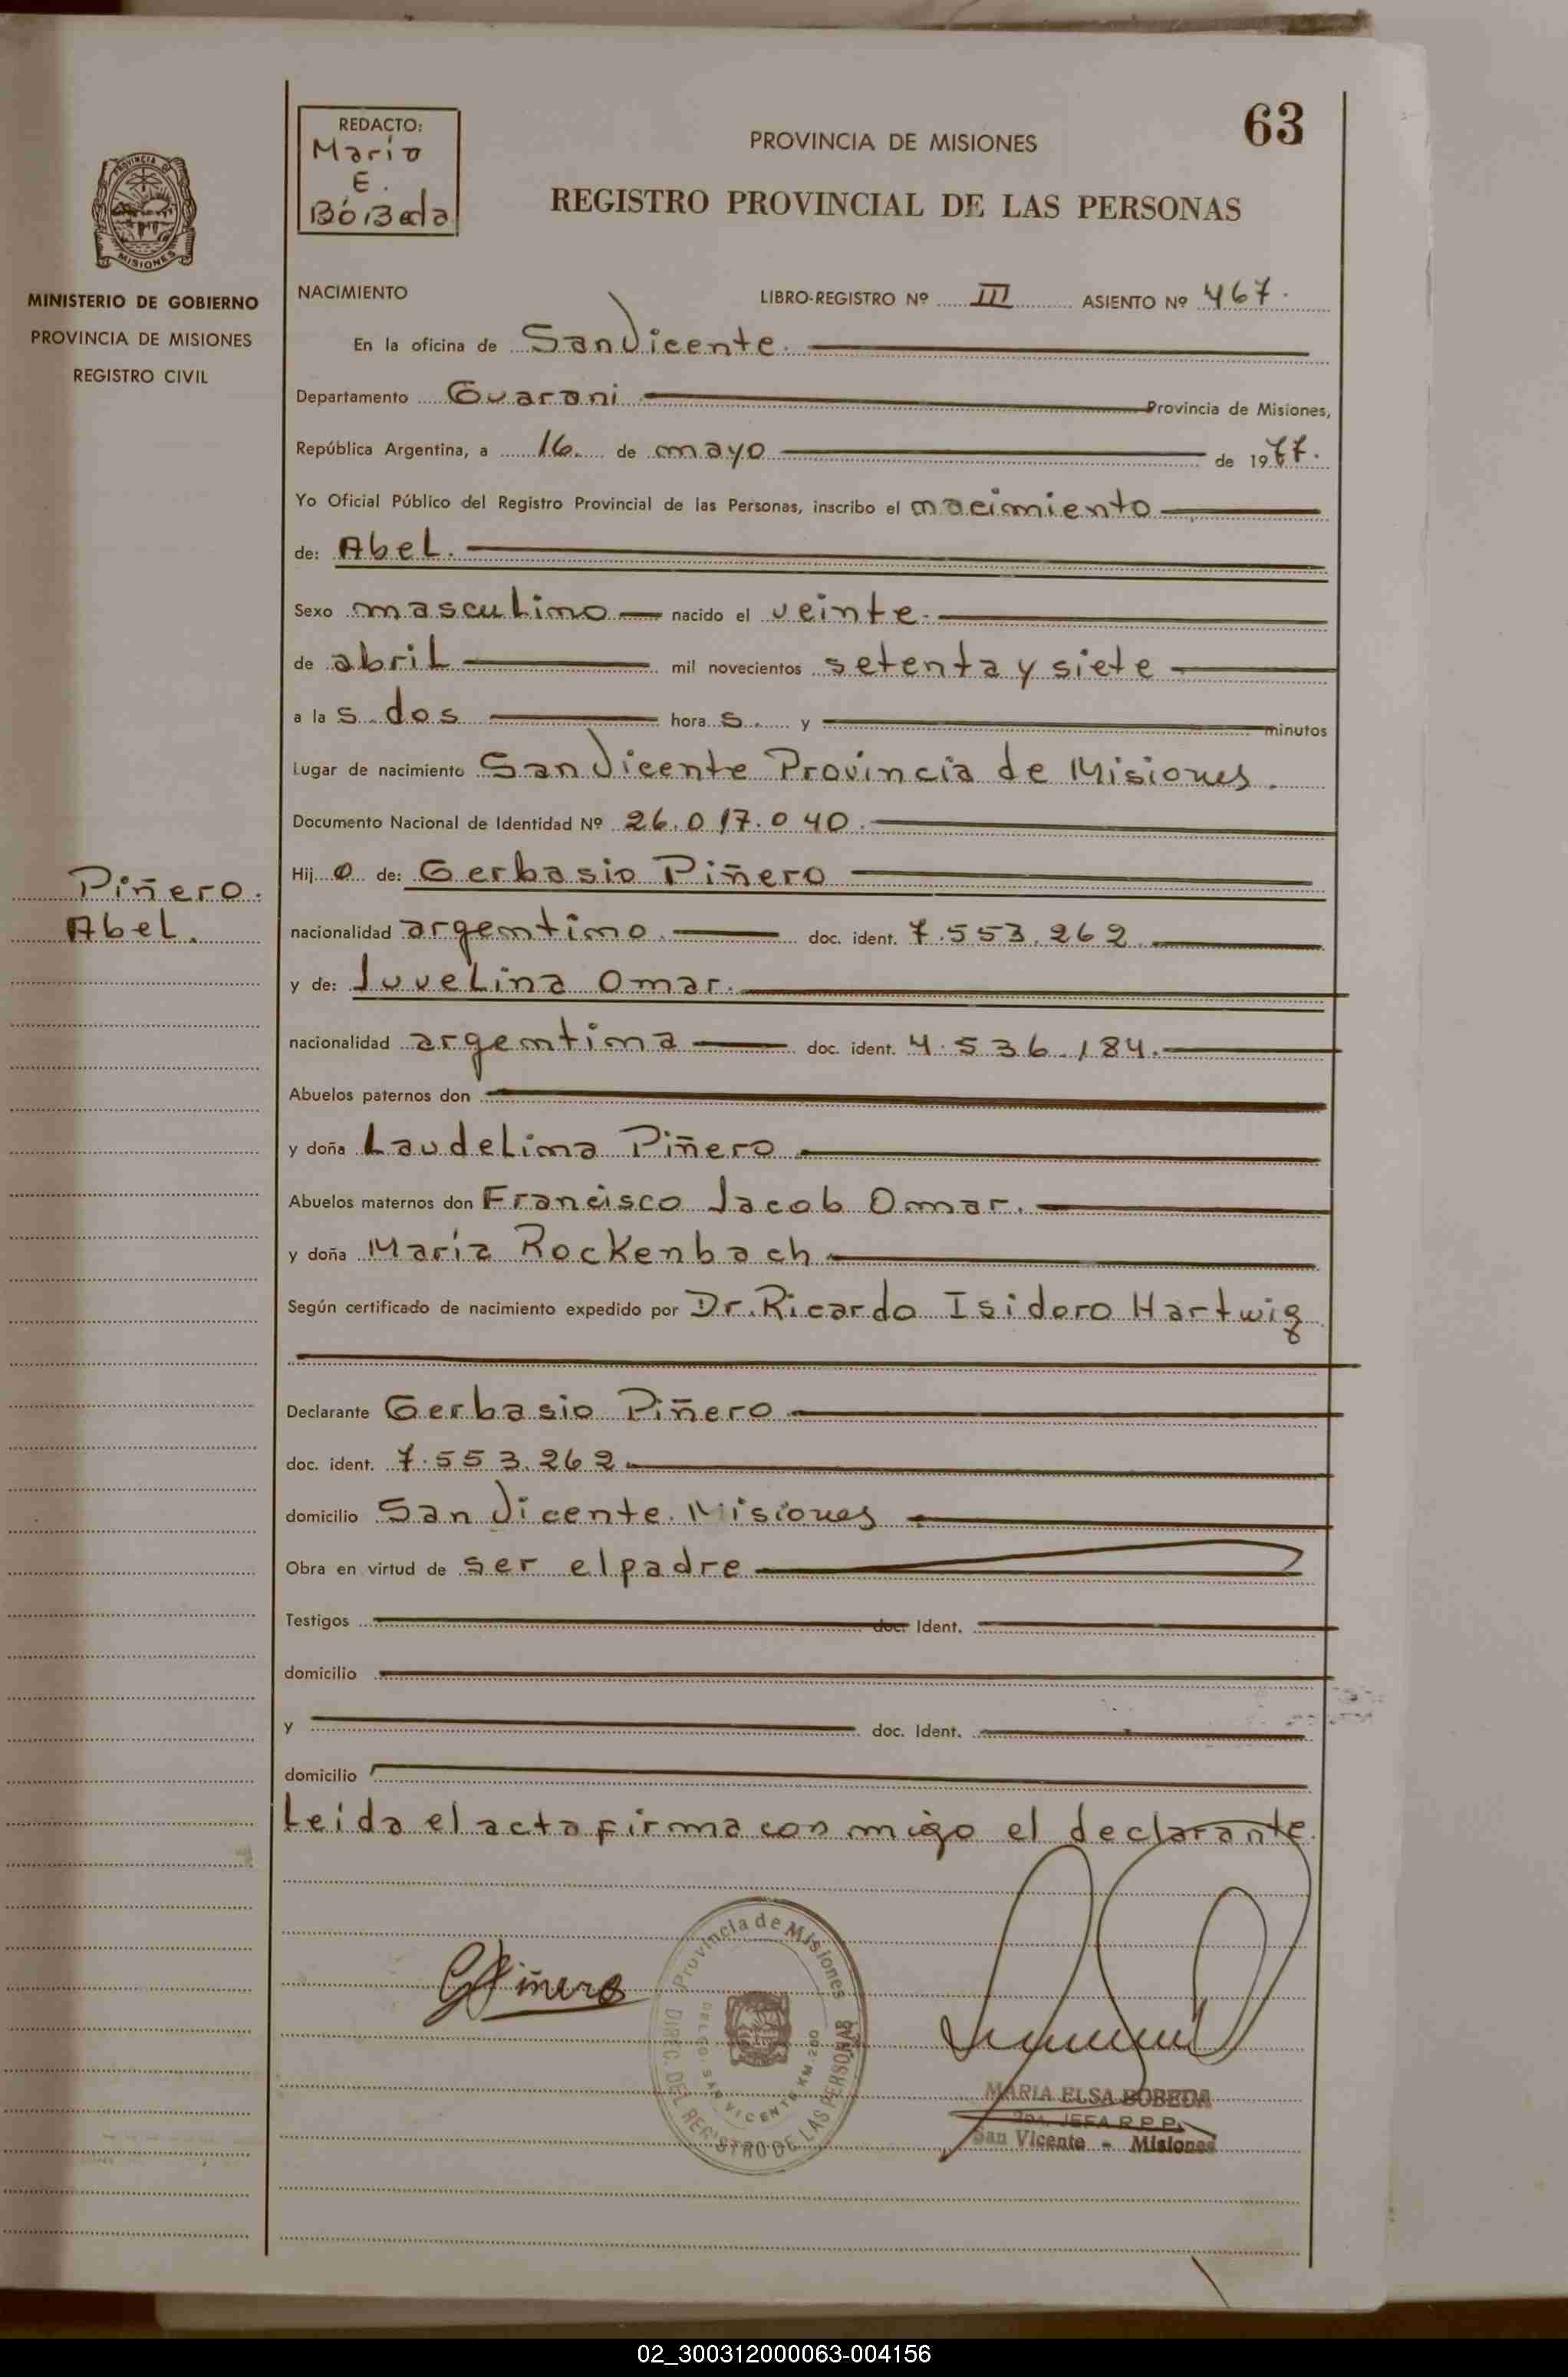 63
REDACTO:
Mario
E.
BóBeda
PROVINCIA DE MISIONES
REGISTRO PROVINCIAL DE LAS PERSONAS
PROVINCIA DE MISIONES
MINISTERIO DE GOBIERNO
PROVINCIA DE MISIONES
REGISTRO CIVIL
NACIMIENTO LIBRO-REGISTRO Nº III ASIENTO Nº 467.
En la oficina de San Vicente.
Departamento Guarani Provincia de Misiones,
República Argentina, a 16. de mayo de 1977.
Yo Oficial Público del Registro Provincial de las Personas, inscribo el nacimiento
de: Abel.
Sexo masculino nacido el veinte.
de abril mil novecientos setenta y siete
a la s dos hora s. y minutos
Lugar de nacimiento San Vicente Provincia de Misiones.
Documento Nacional de Identidad Nº 26.017.040.
Piñero.
Abel.
Hij o de: Gerbasio Piñero
nacionalidad argentino. doc. ident. 7.553.262
y de: Juvelina Omar.
nacionalidad argentina doc. ident. 4.536.184.
Abuelos paternos don
y doña Laudelina Piñero
Abuelos maternos don Francisco Jacob Omar.
y doña María Rockenbach
Según certificado de nacimiento expedido por Dr. Ricardo Isidoro Hartwig
Declarante Gerbasio Piñero
doc. ident. 7.553.262
domicilio San Vicente. Misiones
Obra en virtud de ser el padre
Testigos doc. Ident.
domicilio
y doc. Ident.
domicilio
Leida el acta firma con migo el declarante.
GPiñero
Provincia de Misiones
DIREC. DEL REGISTRO DE LAS PERSONAS
DELEG. SAN VICENTE KM. 260
MARIA ELSA BOBEDA
JEFA R.P.P.
San Vicente - Misiones
02_300312000063-004156